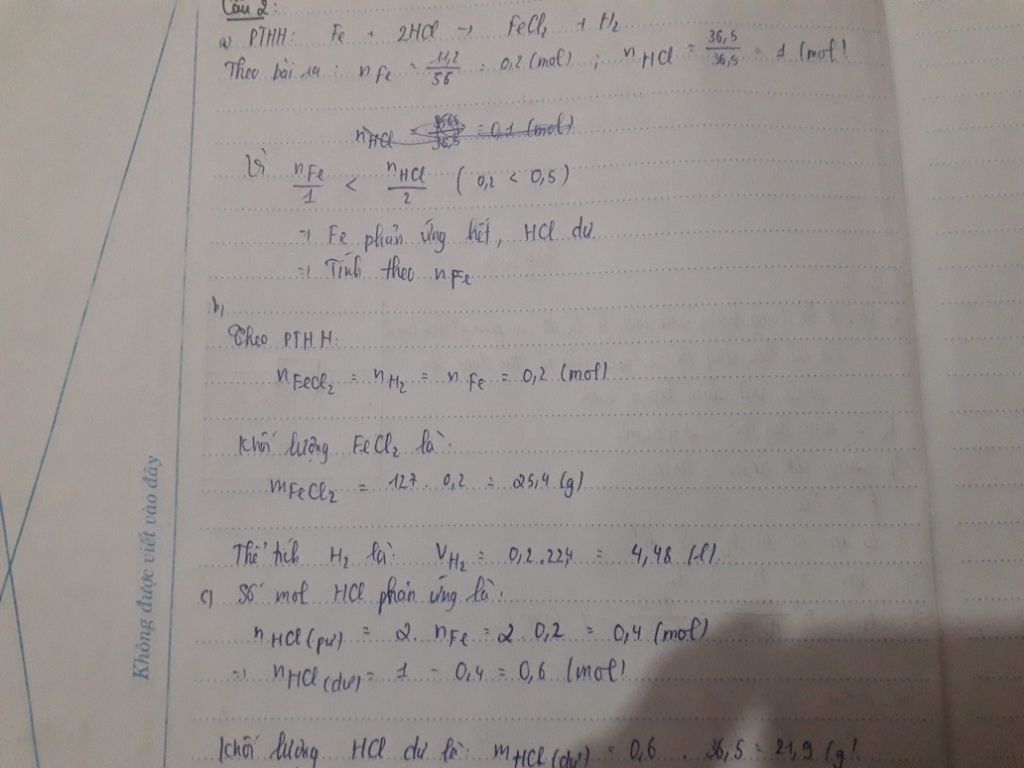 Câu 2:
a) PTHH: Fe + 2HCl → FeCl₂ + H₂
Theo bài ra: nFe = 11,2/56 = 0,2 (mol) ; nHCl = 36,5/36,5 = 1 (mol)
nHCl = 36,5 = 0,1 (mol)
Vì nFe/1 < nHCl/2 (0,2 < 0,5)
⇒ Fe phản ứng hết, HCl dư
⇒ Tính theo nFe
b,
Theo PTHH:
nFeCl₂ = nH₂ = nFe = 0,2 (mol)
Khối lượng FeCl₂ là:
mFeCl₂ = 127 . 0,2 = 25,4 (g)
Thể tích H₂ là: VH₂ = 0,2.22,4 = 4,48 (l)
c) Số mol HCl phản ứng là:
nHCl(pư) = 2. nFe = 2. 0,2 = 0,4 (mol)
⇒ nHCl(dư) = 1 - 0,4 = 0,6 (mol)
Khối lượng HCl dư là: mHCl(dư) = 0,6 . 36,5 = 21,9 (g)
Không được viết vào đây